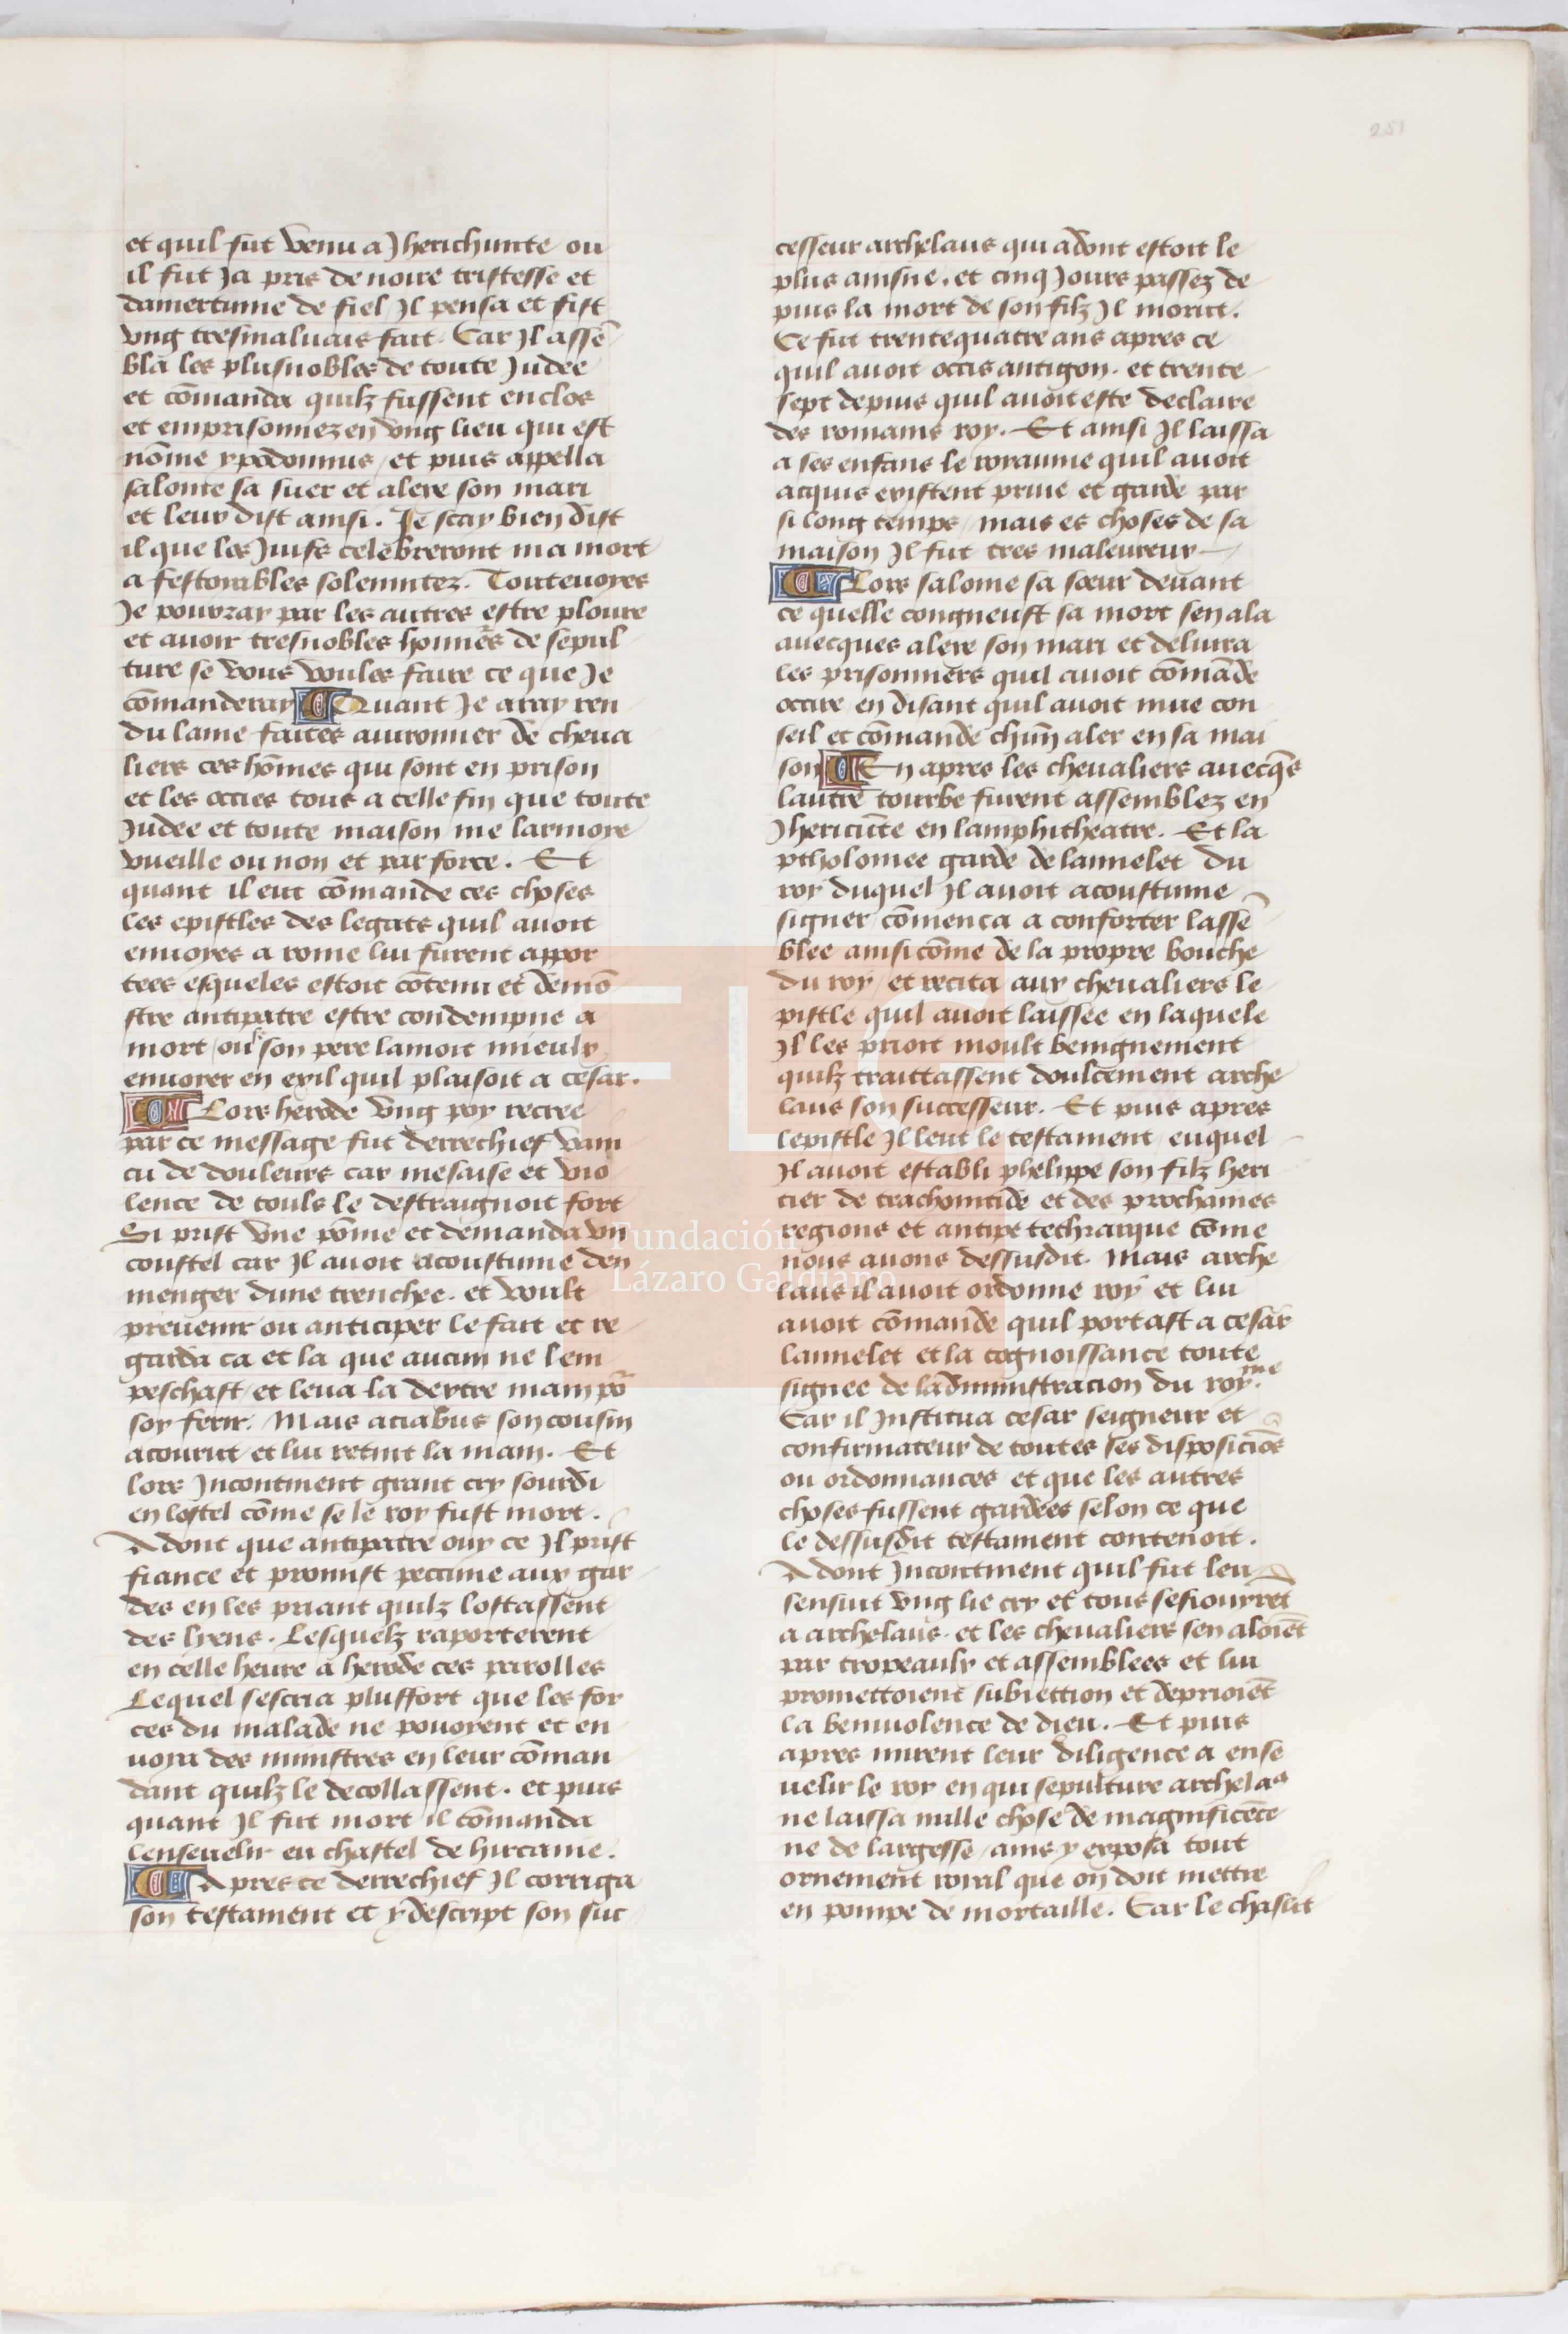 251
et quil fut venu a Jherichunte ou
il fut Ja pris de noire tristesse et
damertume de fiel Il pensa et fist
vng tresmaluais fait. Car Il assē
bla les plusnobles de toute Judee
et cōmanda quilz fussent enclos
et emprisonnez en vng lieu qui est
nōme ypodomus / et puis appella
salome sa suer et alexe son mari
et leur dist ainsi. Je scay bien dist
il que les Juifs celebreront ma mort
a festoiables solemnitez. Toutevoyes
Je pourray par les autres estre ploure
et auoir tresnobles honnēs de sepul
ture se vous voules faire ce que Je
cōmanderay Quant Je aray ren
du lame faites auironner de cheua
liers ces hōmes qui sont en prison
et les occies tous a celle fin que toute
Judee et toute maison me larmoye
vueille ou non et par force. Et
quant il eut cōmande ces choses
les epistles des legats quil auoit
enuoyes a rome lui furent appor
tees esqueles estoit cōtenu et demō
stre antipatre estre condempne a
mort / ou se son pere lamoit mieulx
enuoyer en exil quil plaisoit a cesar.
Lors herode vng poy recree
par ce message fut derrechief vain
cu de douleurs car mesaise et vio
lence de touls le destraignoit fort
Si prist vne pōme et demanda vn
coustel car Il auoit acoustume den
menger dune trenchee. et voult
preuenir ou anticiper le fait et re
garda ca et la que aucun ne lem
peschast / et leua la dextre main pō
soy ferir. Mais aciabus son cousin
acourut et lui retint la main. Et
lors Incontinent grant cry sourdi
en lostel cōme se le roy fust mort.
Adont que antipatre ouy ce Il prist
fiance et promist peccune aux gar
des en les priant quilz lostassent
des lyens. Lesquelz raporterent
en celle heure a herode ces parolles
Lequel sescria plusfort que les for
ces du malade ne pouoyent et en
uoya des ministres en leur cōman
dant quilz le decollassent. et puis
quant Il fut mort il cōmanda
lenseuelir eu chastel de hircanie.
Apres ce derrechief Il corriga
son testament et y descript son suc
cesseur archelaus qui adont estoit le
plus ainsne. et cinq Jours passez de
puis la mort de son filz Il morut.
Ce fut trentequatre ans apres ce
quil auoit occis antigon. et trente
sept depuis quil auoit este declaire
des romains roy. Et ainsi Il laissa
a ses enfans le royaume quil auoit
acquis existent priue et garde par
si long temps / mais es choses de sa
maison Il fut tres maleureux
Lors salome sa sœur deuant
ce quelle congneust sa mort sen ala
auecques alexe son mari et deliura
les prisonniers quil auoit cōmāde
occire en disant quil auoit mue con
seil et cōmande chūn aler en sa mai
son En apres les cheualiers auecq̄s
lautre tourbe furent assemblez en
Jhericūte en lamphitheatre. Et la
ptholomee garde de lannelet du
roy duquel Il auoit acoustume
signer cōmenca a conforter lassē
blee ainsi cōme de la propre bouche
du roy / et recita aux cheualiers le
pistle quil auoit laissee en laquele
Il les prioit moult benignement
quilz traittassent doulcement arche
laus son successeur. Et puis apres
lepistle Il leut le testament / euquel
Il auoit establi phelippe son filz heri
tier de trachonitide et des prochaines
regions et antipe techrarque cōme
nous auons dessusdit. Mais arche
laus il auoit ordonne roy et lui
auoit cōmande quil portast a cesar
lannelet et la cognoissance toute
signee de ladministracion du royme.
Car il Institua cesar seigneur et
confirmateur de toutes ses disposiciōs
ou ordonnances et que les autres
choses fussent gardees selon ce que
le dessusdit testament contenoit.
Adont Incontinent quil fut leu
sensuit vng lie cry et tous sesiouyrēt
a archelaus. et les cheualiers sen aloiēt
par tropeaulx et assemblees et lui
promettoient subiection et deprioiēt
la beniuolence de dieu. Et puis
apres mirent leur diligence a ense
uelir le roy en qui sepulture archelaus
ne laissa nulle chose de magnificēce
ne de largesse / ains y exposa tout
ornement roial que on doit mettre
en pompe de mortaille. Car le chaslit
Fundación
Lázaro Galdiano
FLG